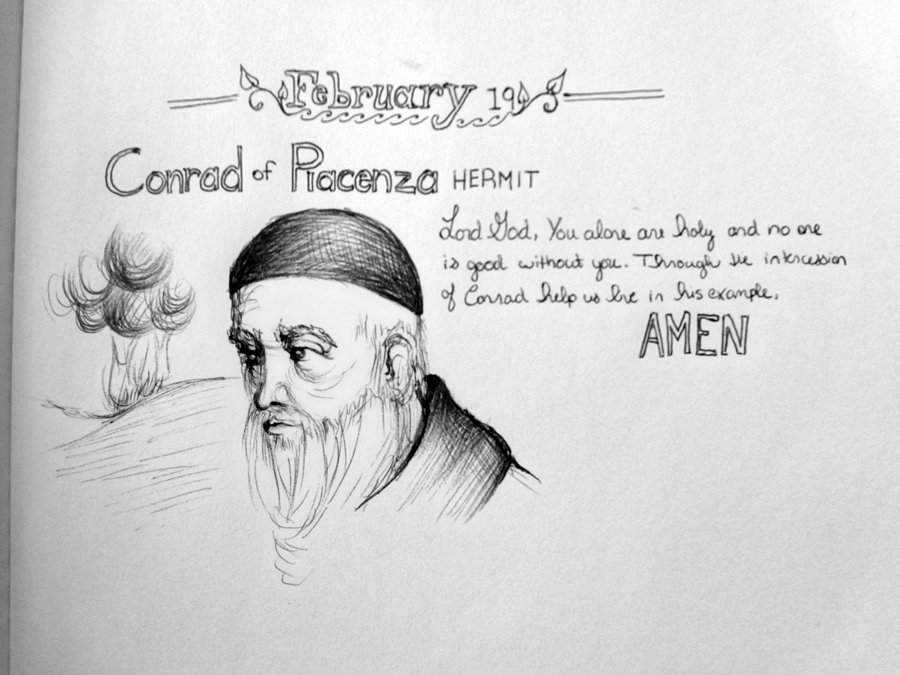 February 19
Conrad of Piacenza HERMIT
Lord God, You alone are holy and no one
is good without you. Through the intercession
of Conrad help us live in his example.
AMEN